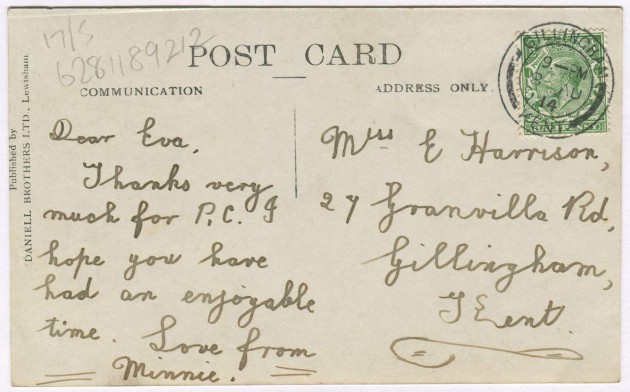 17/5
6281189212
POST CARD
COMMUNICATION
ADDRESS ONLY
Published by
DANIELL BROTHERS LTD., Lewisham
GILLINGHAM
9 PM
14
KENT
Dear Eva,
Thanks very
much for P.C. I
hope you have
had an enjoyable
time. Love from
Minnie.
Miss E Harrison,
27 Granvilla Rd,
Gillingham,
Kent.